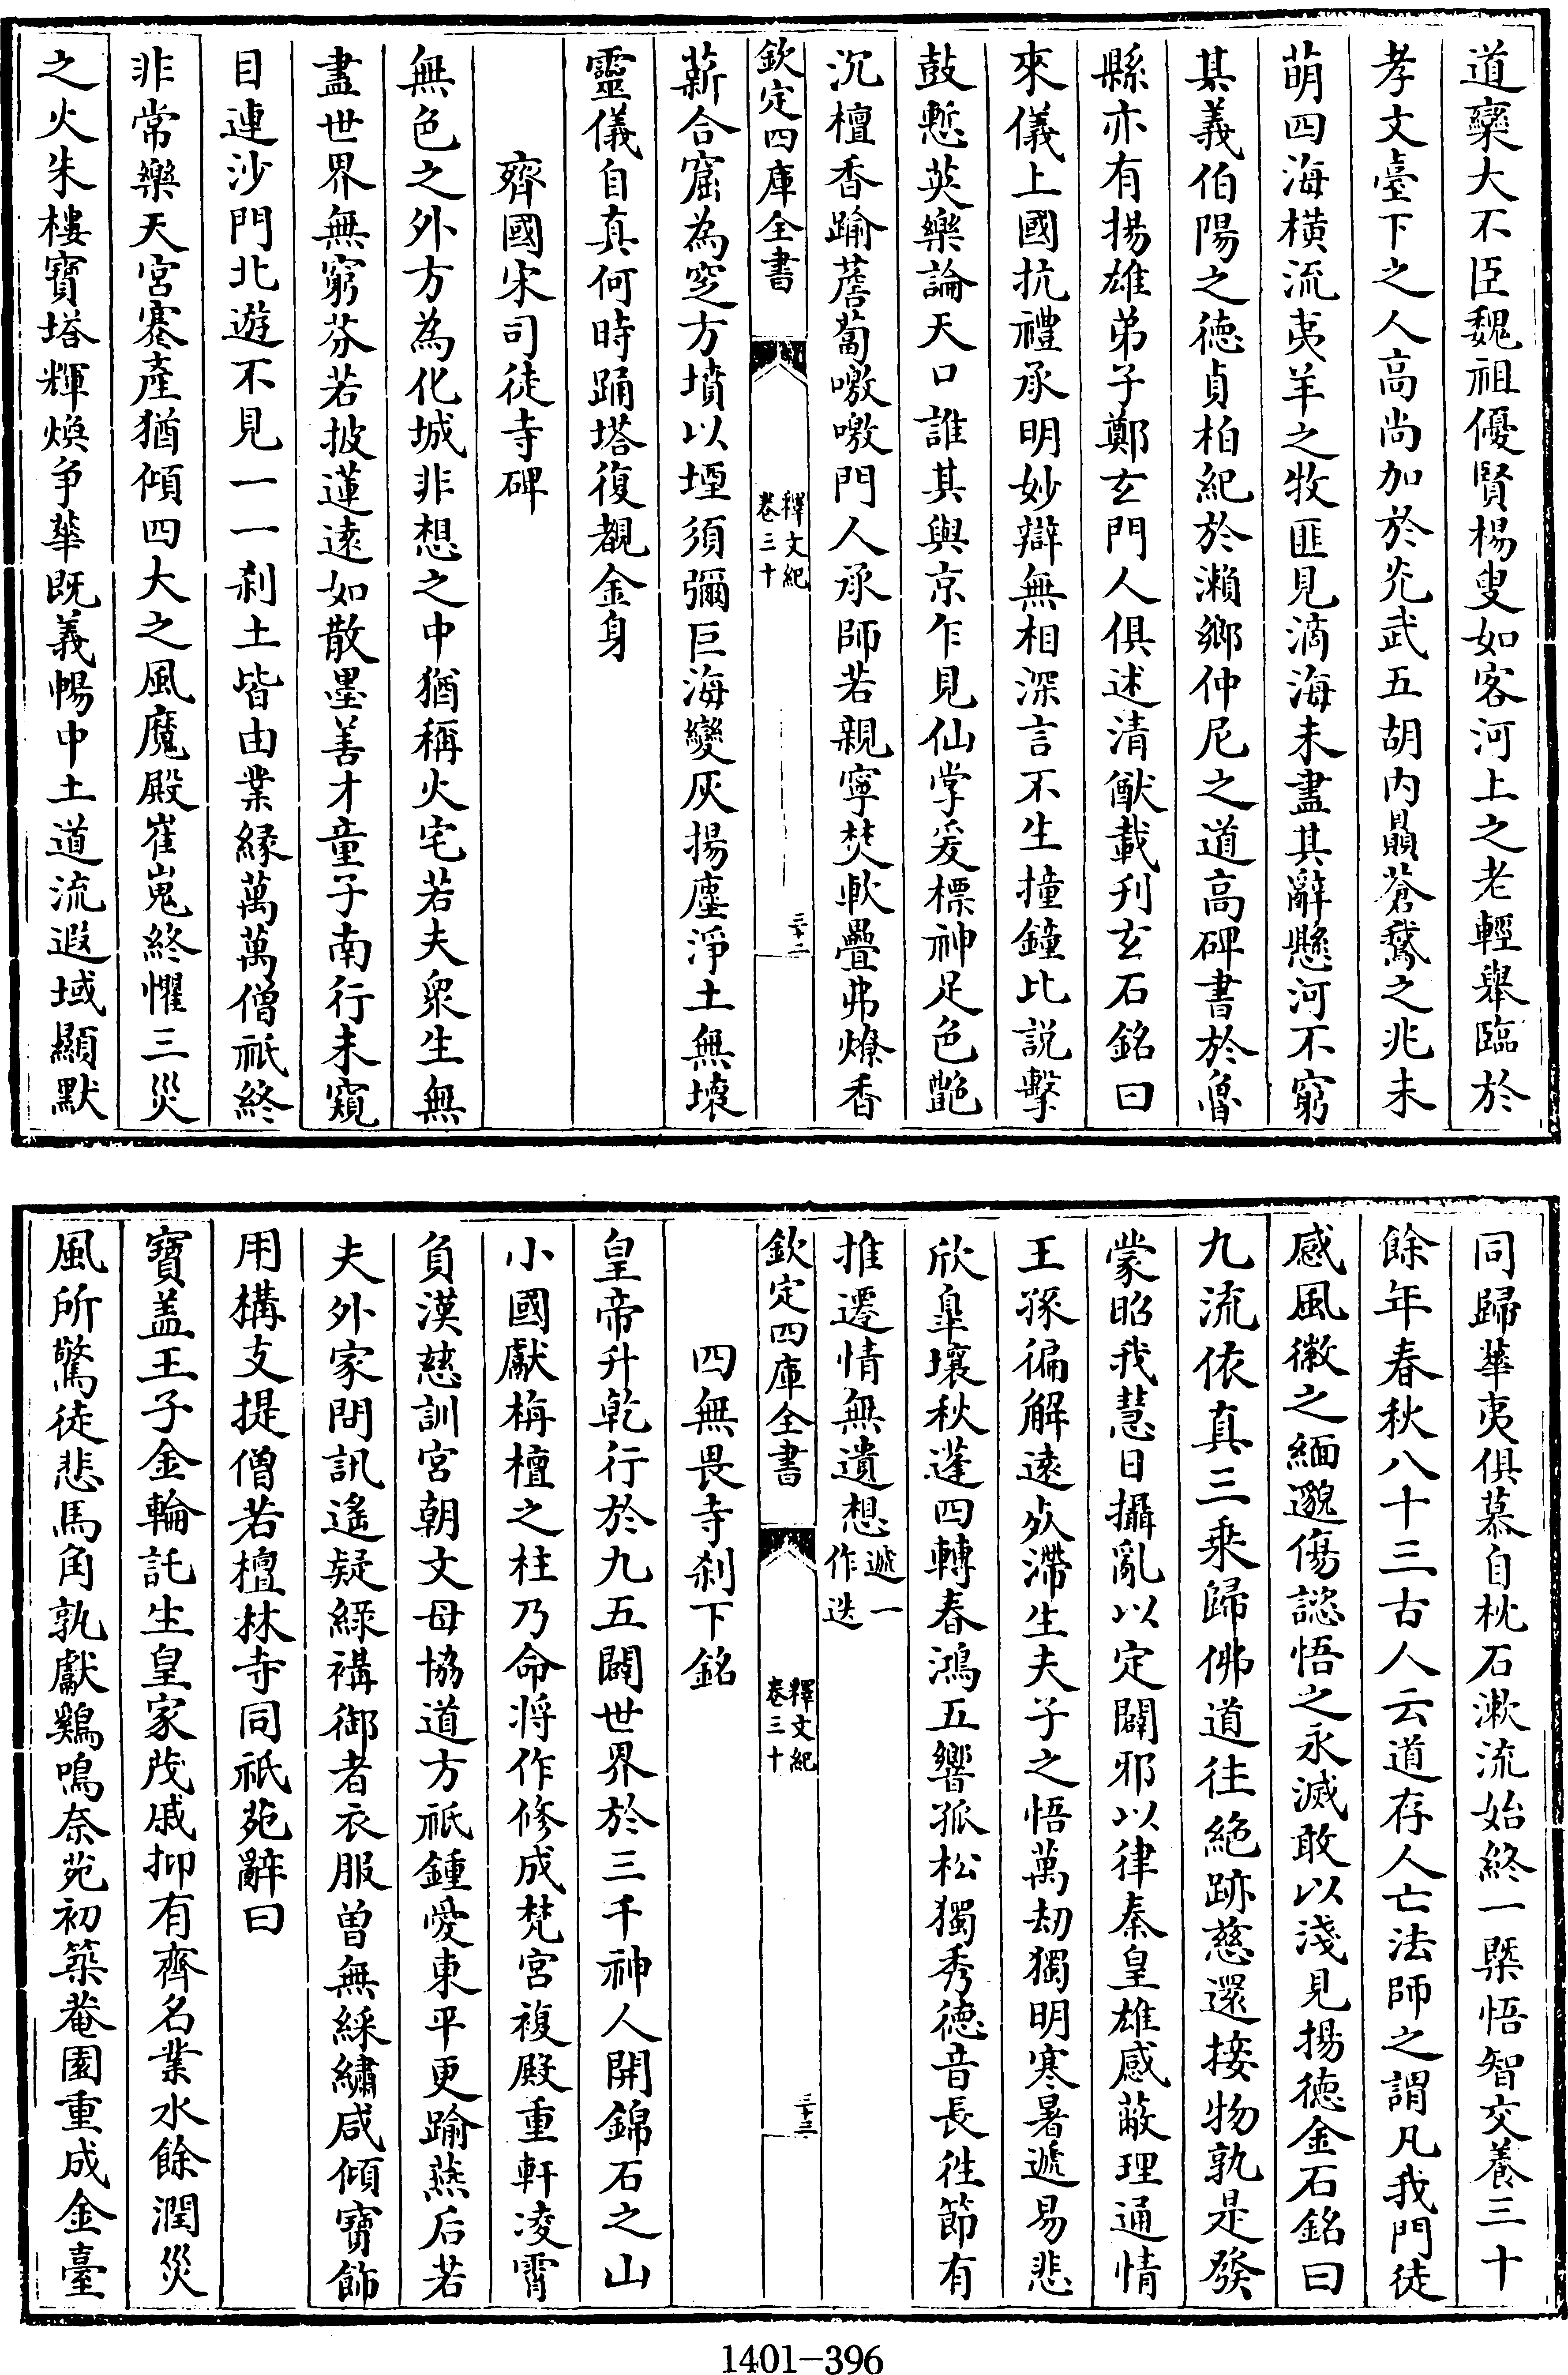 道欒大不臣魏祖優賢楊叟如客河上之老輕舉臨於
孝文臺下之人高尚加於光武五胡内贔蒼鵞之兆未
萌四海橫流夷羊之牧匪見滴海未盡其辭懸河不窮
其義伯陽之徳貞柏紀於瀨鄉仲尼之道高碑書於魯
縣亦有揚雄弟子鄭玄門人俱述清猷載刋玄石銘曰
來儀上國抗禮承明妙辯無相深言不生撞鐘比説擊
鼓慙英樂論天口誰其與京乍見仙掌爰標神足色艷
沉檀香踰薝蔔噭噭門人承師若親寧焚軟疊弗燎香
欽定四庫全書
釋文紀
卷三十
三十二
薪合窟為窆方墳以堙須彌巨海變灰揚塵淨土無壞
靈儀自真何時踊塔復覩金身
齊國宋司徒寺碑
無色之外方為化城非想之中猶稱火宅若夫衆生無
盡世界無窮芬若披蓮逺如散墨善才童子南行未窺
目連沙門北遊不見一一刹土皆由業縁萬萬僧祇終
非常樂天宮蹇產猶傾四大之風魔殿崔嵬終懼三災
之火朱樓寶塔輝煥争華既義暢中土道流遐域顯默
同歸華夷俱慕自枕石漱流始終一槩悟智交養三十
餘年春秋八十三古人云道存人亡法師之謂凡我門徒
感風徽之緬邈傷諮悟之永滅敢以淺見揚徳金石銘曰
九流依真三乘歸佛道往絶跡慈還接物孰是發
蒙昭我慧日攝亂以定闢邪以律秦皇雄感蔽理通情
王豚徧解逺㸃滯生夫子之悟萬劫獨明寒暑遞易悲
欣臯壤秋蓬四轉春鴻五響孤松獨秀徳音長徃節有
推遷情無遺想遞一作迭
欽定四庫全書
釋文紀
卷三十
三十三
四無畏寺刹下銘
皇帝升乾行於九五闢世界於三千神人開錦石之山
小國獻栴檀之柱乃命将作修成梵宮複殿重軒凌霄
負漢慈訓宮朝文母協道方祇鍾愛東平更踰燕后若
夫外家問訊遙疑緑褠御者衣服曽無綵繡咸傾寶飾
用構支提僧若檀林寺同祇苑辭曰
寶盖王子金輪託生皇家茂戚抑有齊名業水餘潤災
風所驚徒悲馬角孰獻鷄鳴奈苑初築菴園重成金臺
1401-396